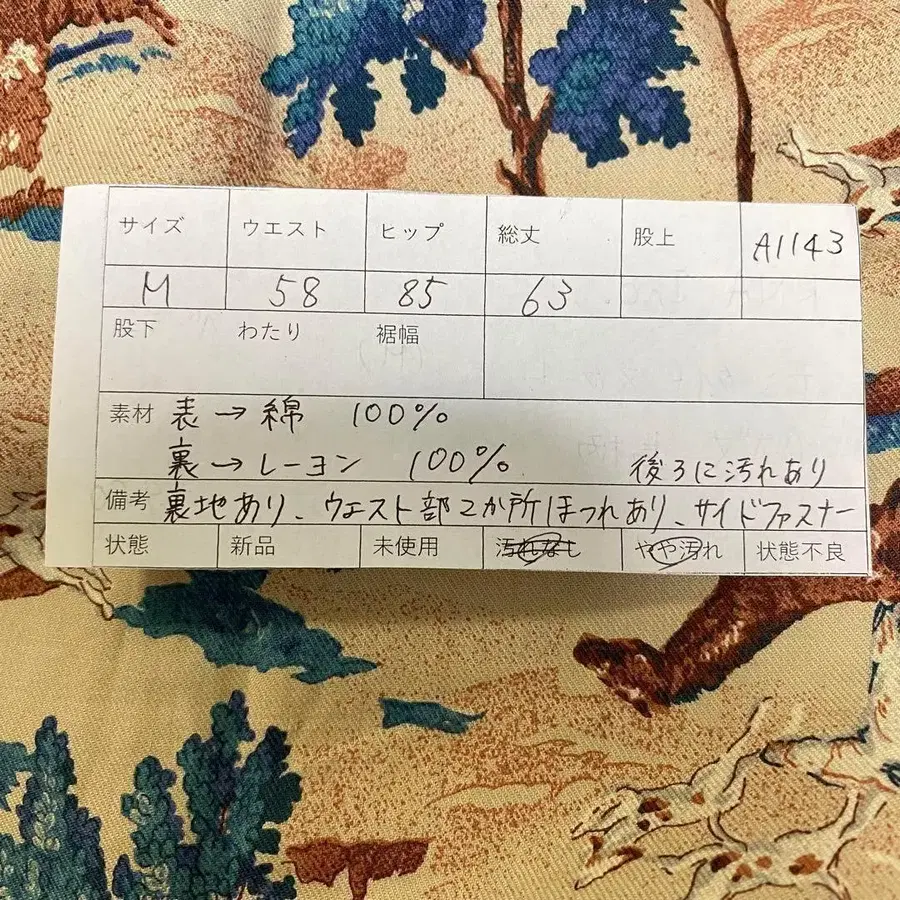 サイズ ウエスト ヒップ 総丈 股上 A1143
M 58 85 63
股下 わたり 裾幅
素材 表→綿 100%
裏→レーヨン 100% 後ろに汚れあり
備考 裏地あり、ウエスト部2か所ほつれあり、サイドファスナー
状態 新品 未使用 汚れなし やや汚れ 状態不良